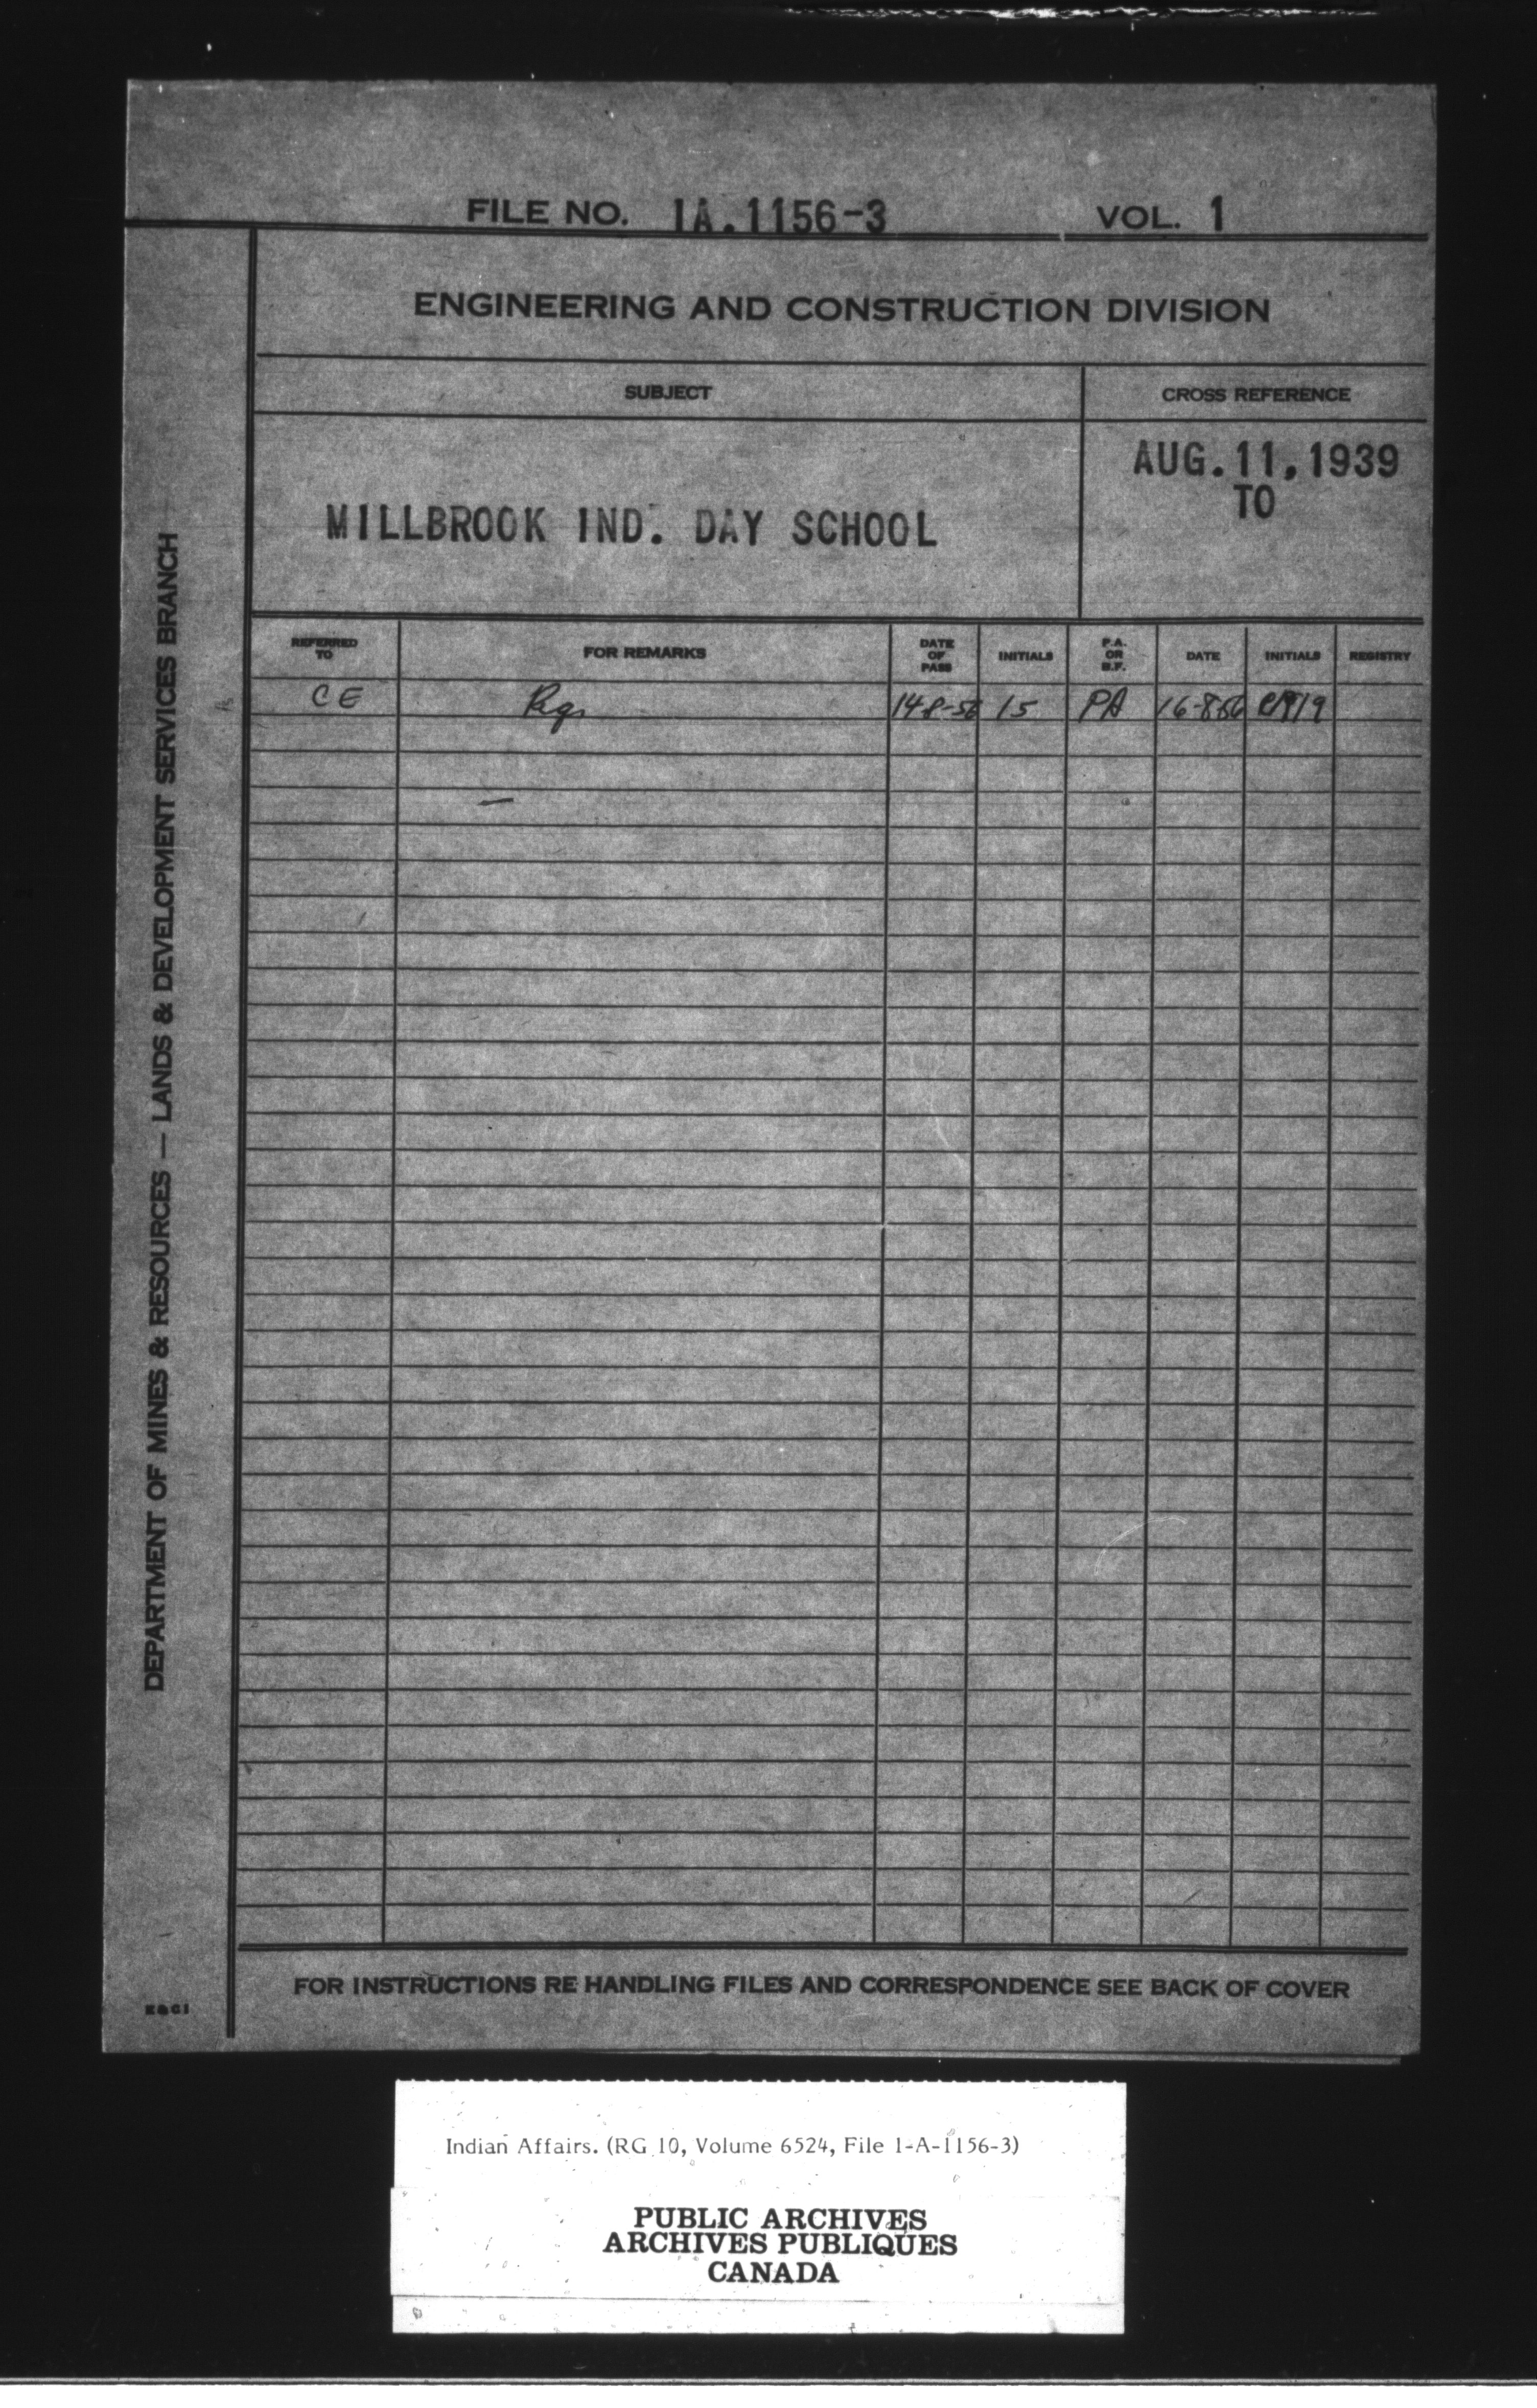 FILE NO. 1A.1156-3 VOL. 1
ENGINEERING AND CONSTRUCTION DIVISION
SUBJECT CROSS REFERENCE
AUG. 11, 1939
TO
MILLBROOK IND. DAY SCHOOL
REFERRED TO FOR REMARKS DATE OF PASS INITIALS P.A. OR B.F. DATE INITIALS REGISTRY
CE 14-8-56 15 PA 16-8-56
DEPARTMENT OF MINES & RESOURCES — LANDS & DEVELOPMENT SERVICES BRANCH
FOR INSTRUCTIONS RE HANDLING FILES AND CORRESPONDENCE SEE BACK OF COVER
Indian Affairs. (RG 10, Volume 6524, File 1-A-1156-3)
PUBLIC ARCHIVES
ARCHIVES PUBLIQUES
CANADA